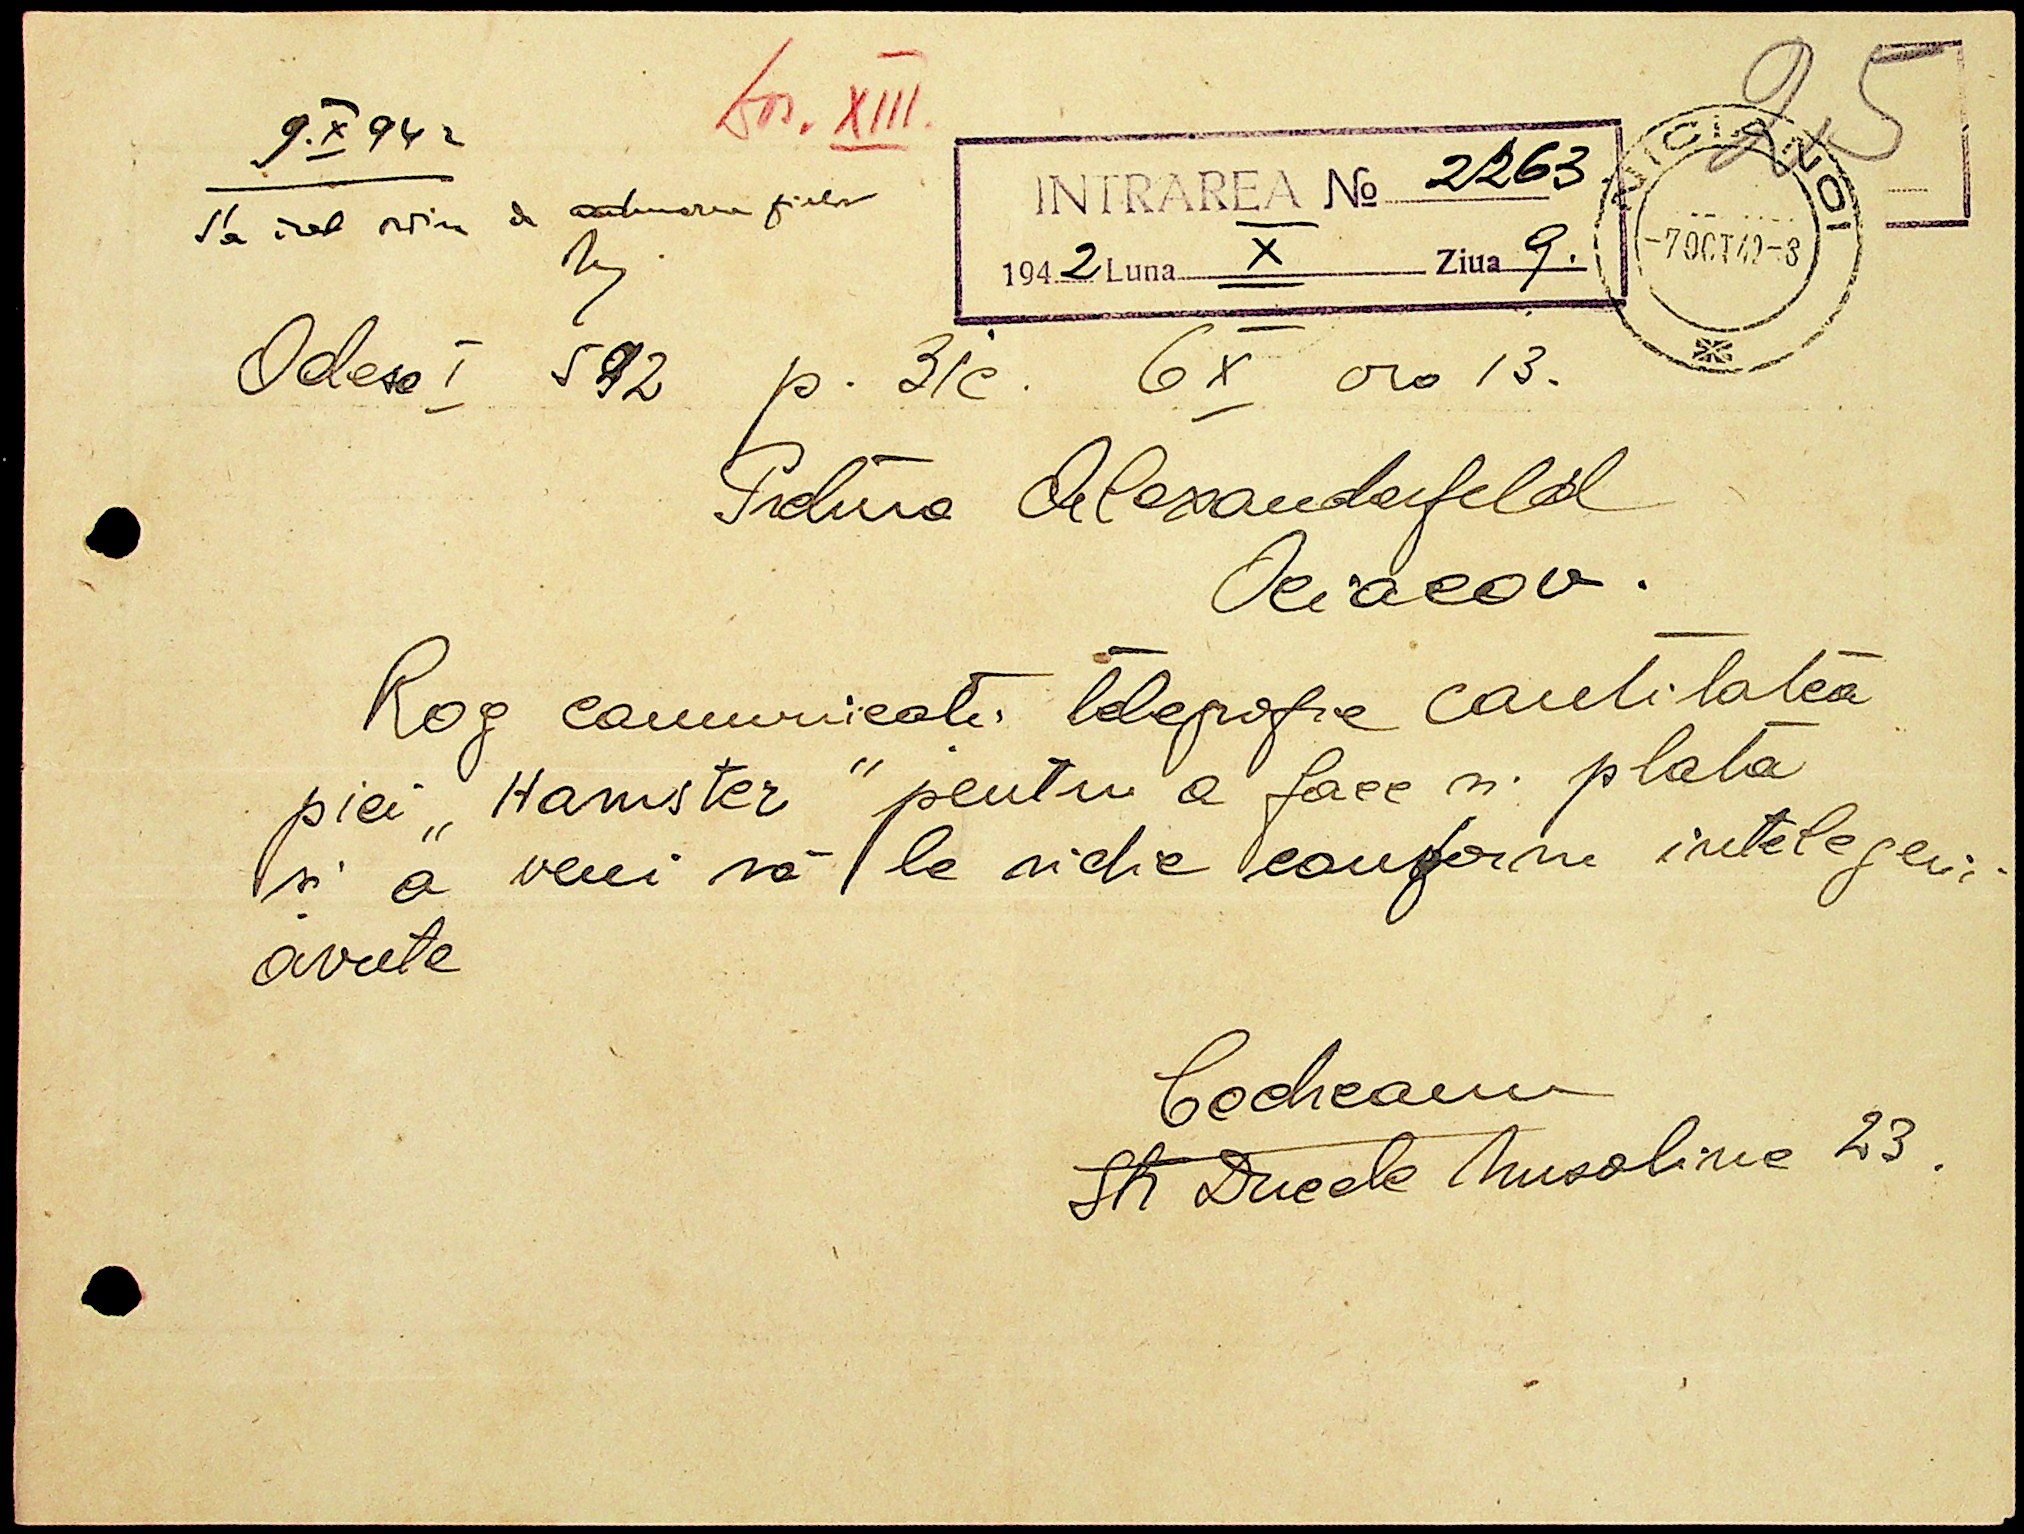 25
Dos. XIII.
9.X 942
INTRAREA No 2263
1942 Luna X Ziua 9.
-7OCT42-8
Să
Odesa I 592 p. 31c. 6X ora 13.
Pretura Alexanderfeld
Ociacov.
Rog comunicati telegrafic cantitatea
piei „Hamster" pentru a face si plata
si a veni să le ridic conform intelegerii
avute
Codreanu
Str Ducele Musoline 23.